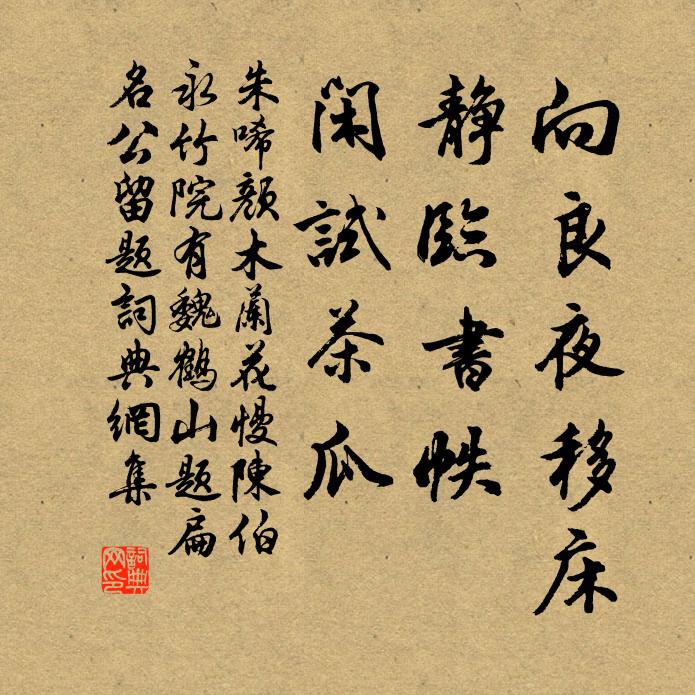 向良夜移床
靜臨書帙
閑試茶瓜
朱唏顏木蘭花慢陳伯
永竹院有魏鶴山題扁
名公留題詞典網集
詞典
网印